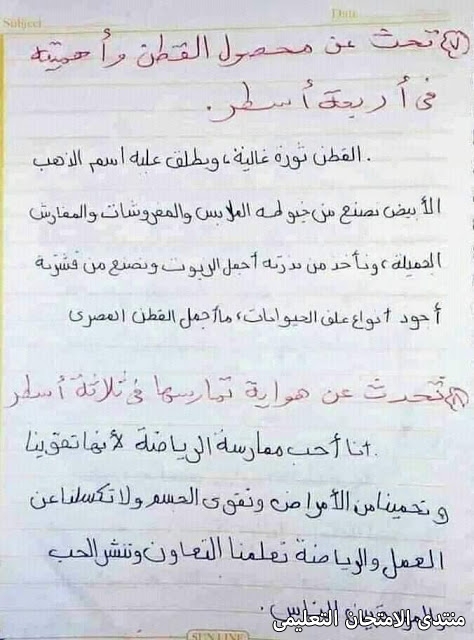 Subject
Date
(٧) تحدث عن محصول القطن وأهميته
فى أربعة أسطر.
. القطن ثورة غالية، ويطلق عليه اسم الذهب
الأبيض نصنع من خيوطه الملابس والمفروشات والمفارش
الجميلة، ونأخذ من بذرته أجمل الزيوت ونصنع من قشرته
أجود أنواع علف الحيوانات، ما أجمل القطن المصرى
(٨) تحدث عن هواية تمارسها فى ثلاثة أسطر
. أنا أحب ممارسة الرياضة لأنها تقوينا
وتحمينا من الأمراض وتقوى الجسم ولا تكسلنا عن
العمل والرياضة تعلمنا التعاون وتنشر الحب
بين الناس.
منتدى الامتحان التعليمى
SUN LINE